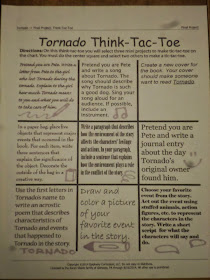 Tornado Think-Tac-Toe
Directions:
Pretend you are Pete. Write a
letter from Pete to the
Pretend you are Pete
and write a song
about Tornado. The
song should describe
why Tornado is such
a good dog. Sing your
song aloud for an
audience. If possible,
include an
instrument.
Create a new cover for
the book. Your cover
should make someone
want to read Tornado.
In a paper bag place five
objects that represent major
events that occurred in the
book. For each item, write
three sentences that
explain the significance of
the object. Decorate the
outside of the bag in a
creative way.
Write a paragraph that describes
how the environment of the story
affects the characters' feelings
and actions. In your paragraph,
include a sentence that explains
how the environment plays a role
in the conflict of the story.
Pretend you are
Pete and write a
journal entry
about the day
Tornado's
original owner
found him.
Use the first letters in
Tornado's name to
write an acrostic
poem that describes
characteristics of
Tornado and events
that happened to
Tornado in the story.
TORNADO
Draw and
color a picture
of your
favorite event
in the story.
Choose your favorite
event from the story.
Act out the event using
stuffed animals, action
figures, etc. to represent
the characters in the
story. Write a short
script for what the
characters will say and
do.